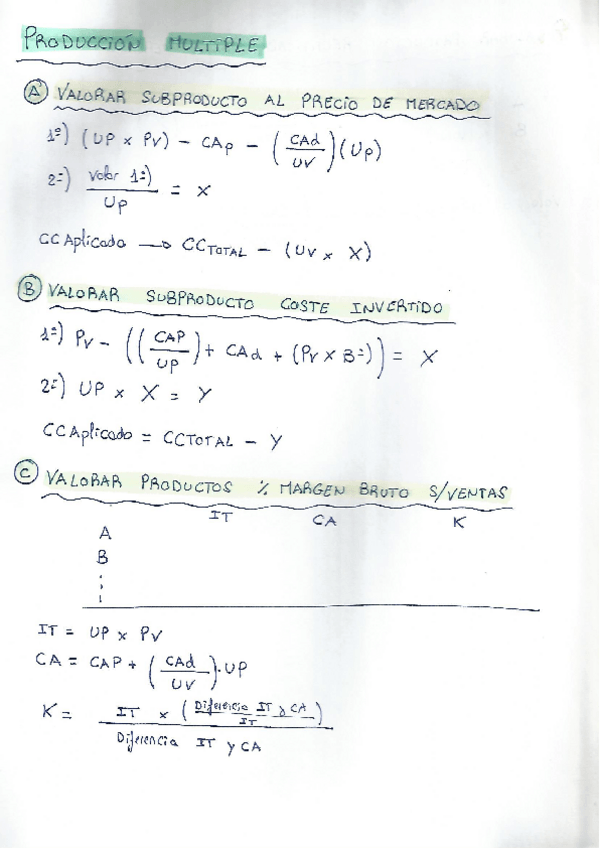 PRODUCCIÓN MULTIPLE
A) VALORAR SUBPRODUCTO AL PRECIO DE MERCADO
1º) (UP x PV) - CAp - (CAd/UV)(Up)
2º) Valor 1º)/Up = X
CCAplicado → CCTOTAL - (UV x X)
B) VALORAR SUBPRODUCTO COSTE INVERTIDO
1º) PV - ((CAP/UP) + CAd + (PV x Bº)) = X
2º) UP x X = Y
CCAplicado = CCTOTAL - Y
C) VALORAR PRODUCTOS % MARGEN BRUTO S/VENTAS
IT CA K
A
B
IT = UP x PV
CA = CAP + (CAd/UV)·UP
K = IT x (Diferencia IT y CA/IT)
Diferencia IT y CA